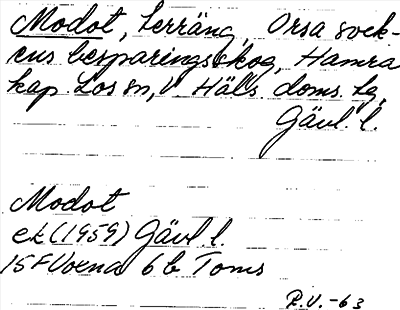 Modot, terräng, Orsa sock-
ens besparingsskog, Hamra
kap. Los sn, Häls. doms. lg,
Gävl. l.
Modot
ek (1959) Gävl. l.
15F Voxna 6 b Toms
R.V. -63